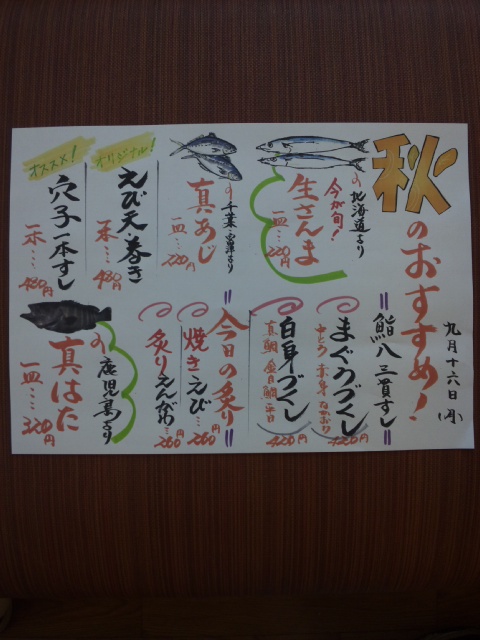 秋のおすすめ!
九月十六日(月)
北海道より
今が旬!
生さんま
千葉・富津より
真あじ
オリジナル!
えび天巻き
一本…480円
オススメ!
穴子一本すし
一本…480円
鮨八三貫ずし
まぐろづくし
中とろ 赤身 ねぎとろ
420円
白身づくし
420円
今日の炙り
焼きえび…260円
炙りえんがわ…260円
の鹿児島より
真はた
一皿…320円